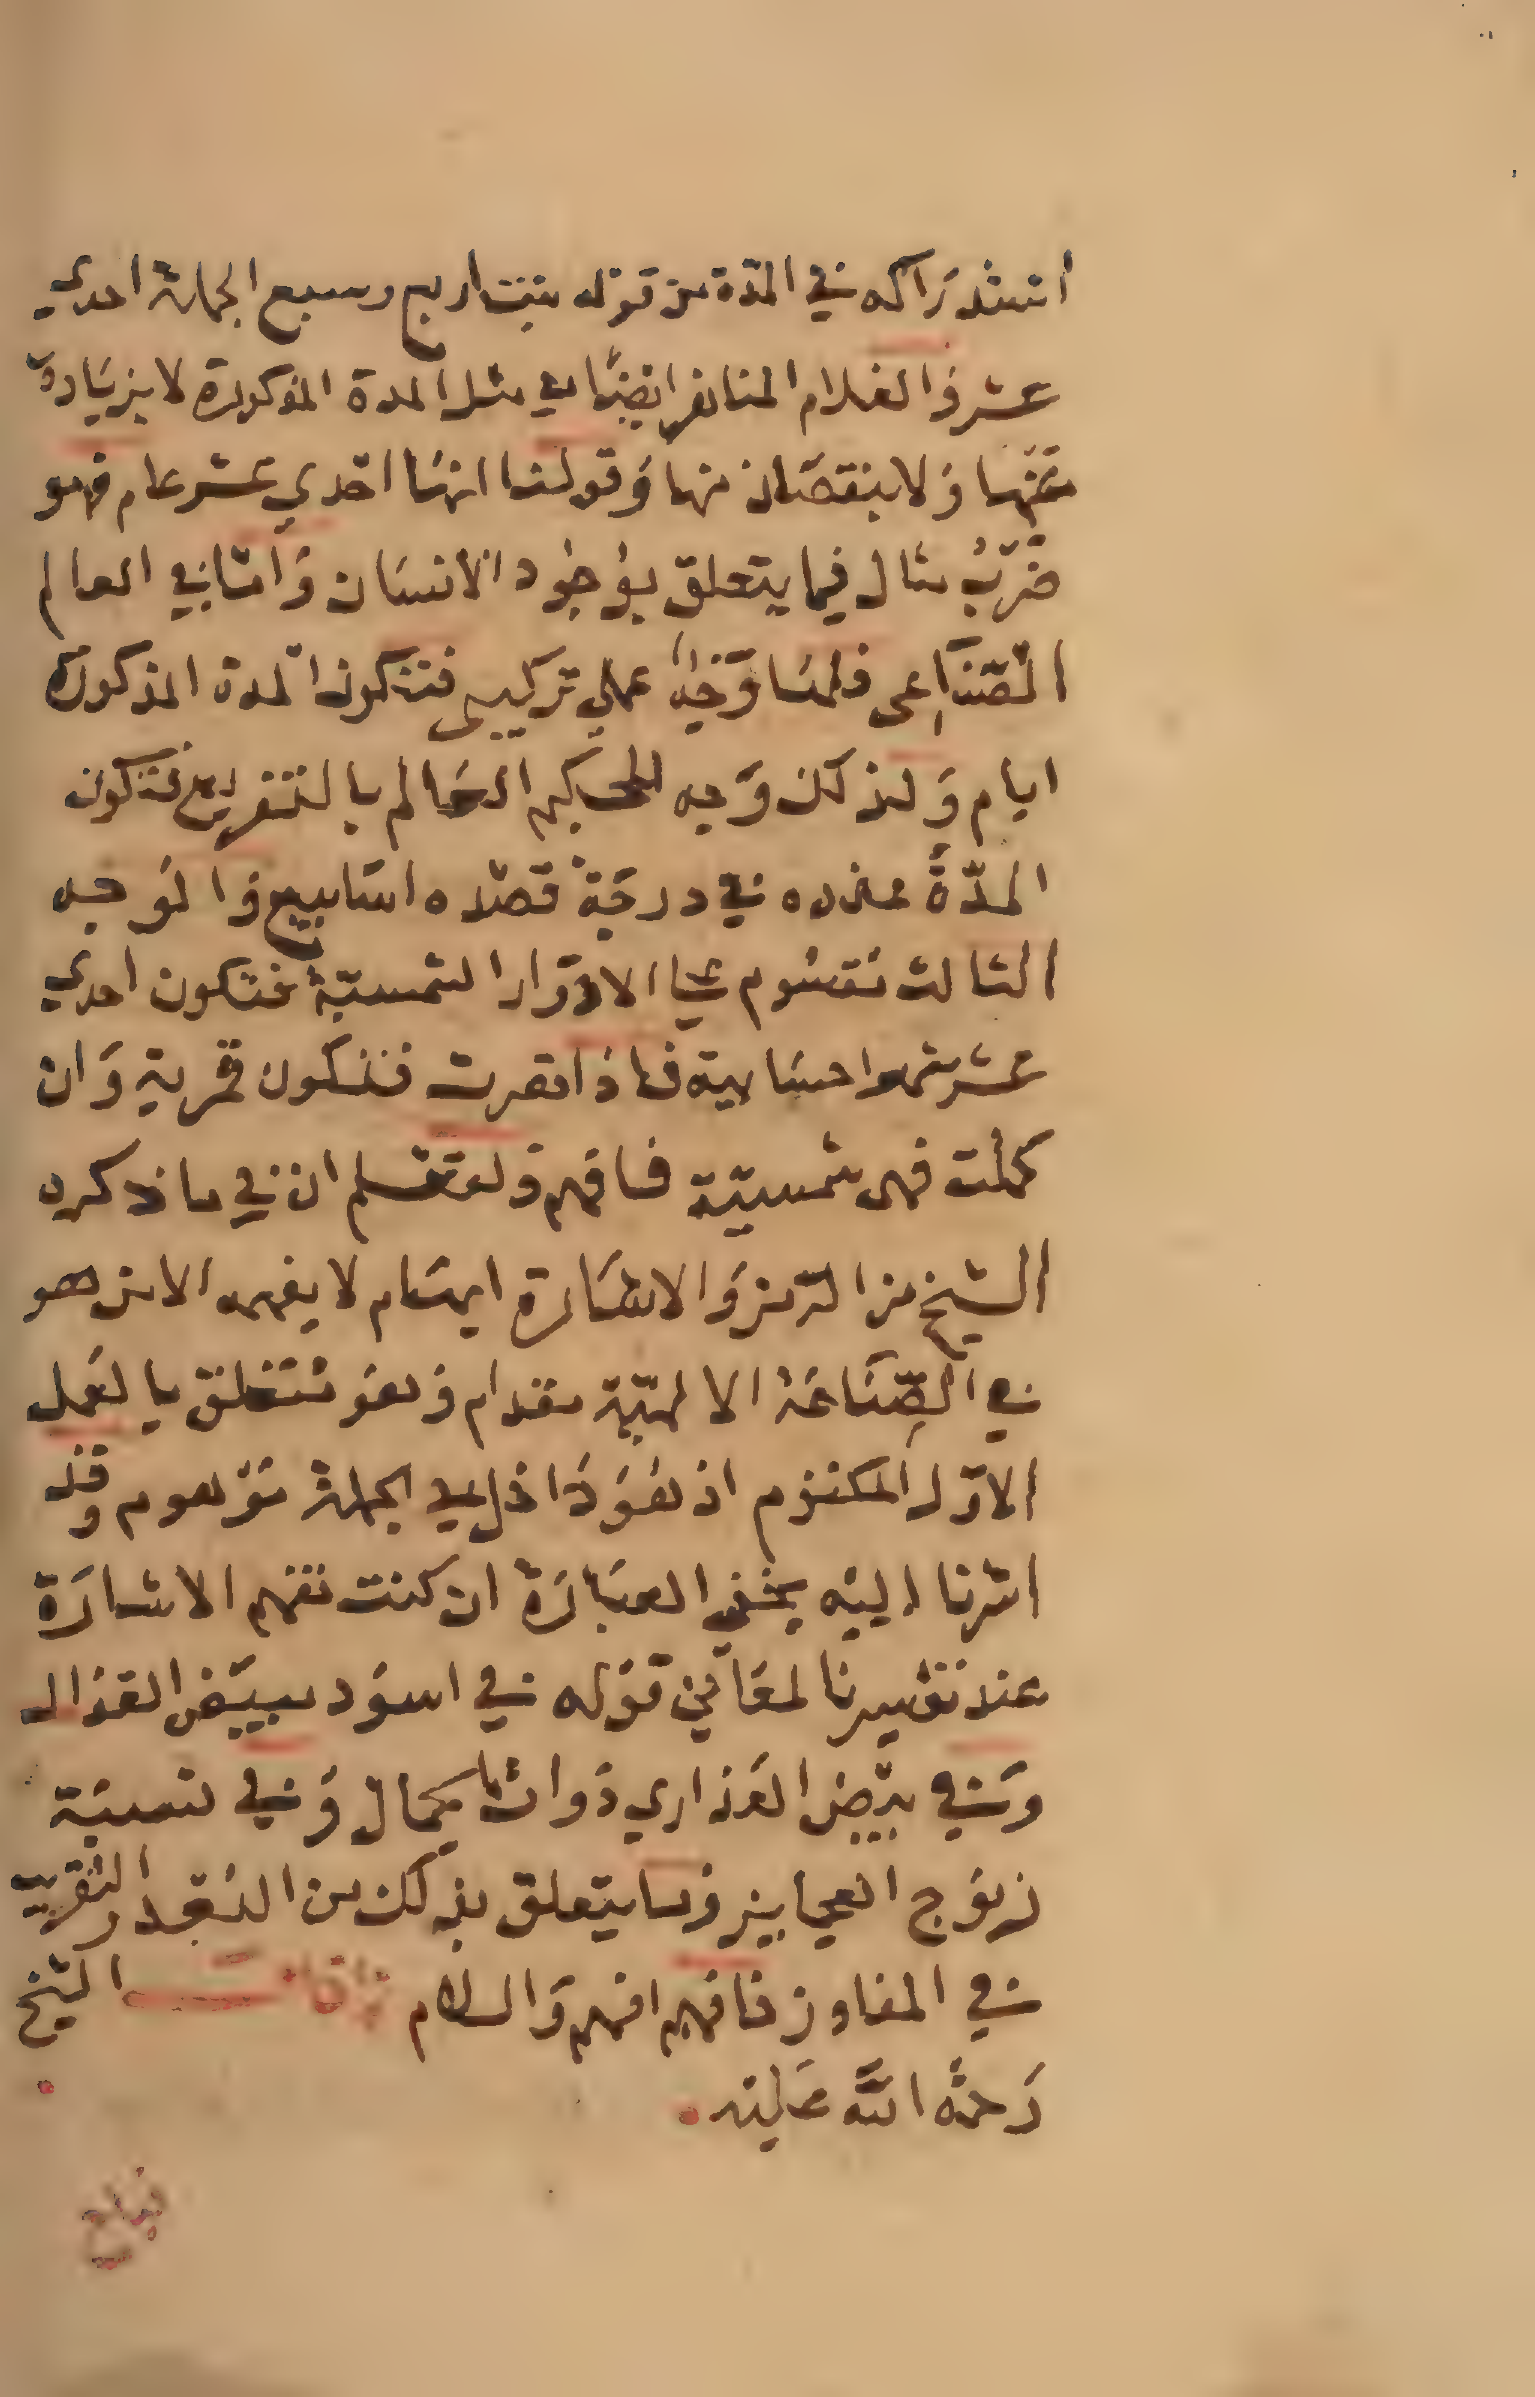 استدراكه في المدة من قوله بنت اربع وسبع الجملة احدي
عشر والغلام المنافر ايضًا في مثل المدة المذكورة لا بزيادة
عنها وَلا بنقصان منها وَقولنا انها احدي عشر عام فهو
ضرْبُ مثال فيما يتعلق بوُجُود الانسان وَامّا في العالم
الصّناعي فلها وَجهٌ علي تركيبي فتكون المدة المذكورة
ايام وَلذلك وَجه للحكيم العَالم بالتفريع فتكون
المدّةُ عنده في درجَة قصده اسَابيع وَالوَجه
الثالث تقسُوم علي الادوَار الشمسيّة فتكون احدي
عشر شهرا حسَابية فاذا نقرت فتكون قمرية وَان
كملت فهي شمسيّة فافهم وَلتعلم ان في ما ذكره
الشيخ من الرّمز وَالاشارة ايهام لا يفهمه الا من هو
في الصِّنَاعَة الالهيّة مقدام وَهو مُتعَلق بالعَمل
الاوّل المكتوم اذ هُوَ دَاخل في الجملة مَوْهوم وقد
اشرنا اليه بخفي العبَارَة ان كنت تفهم الاشارَة
عند تفسيرنا لمعَاني قوْله في اسوَد مبيَّض القذال
وَفي بيض العَذاري ذوات الجمال وَفي نسبَة
زيوج العجايز وَما يتعلق بذلك من البُعد والتقريب
في المفاوز فافهم افهم وَالسلام قال الشيخ
رَحمة اللّه عَليْه